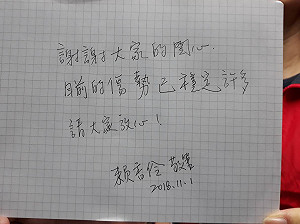 謝謝大家的關心.
目前的傷勢已穩定許多
請大家放心!
賴吉伶 敬筆
2018.11.1